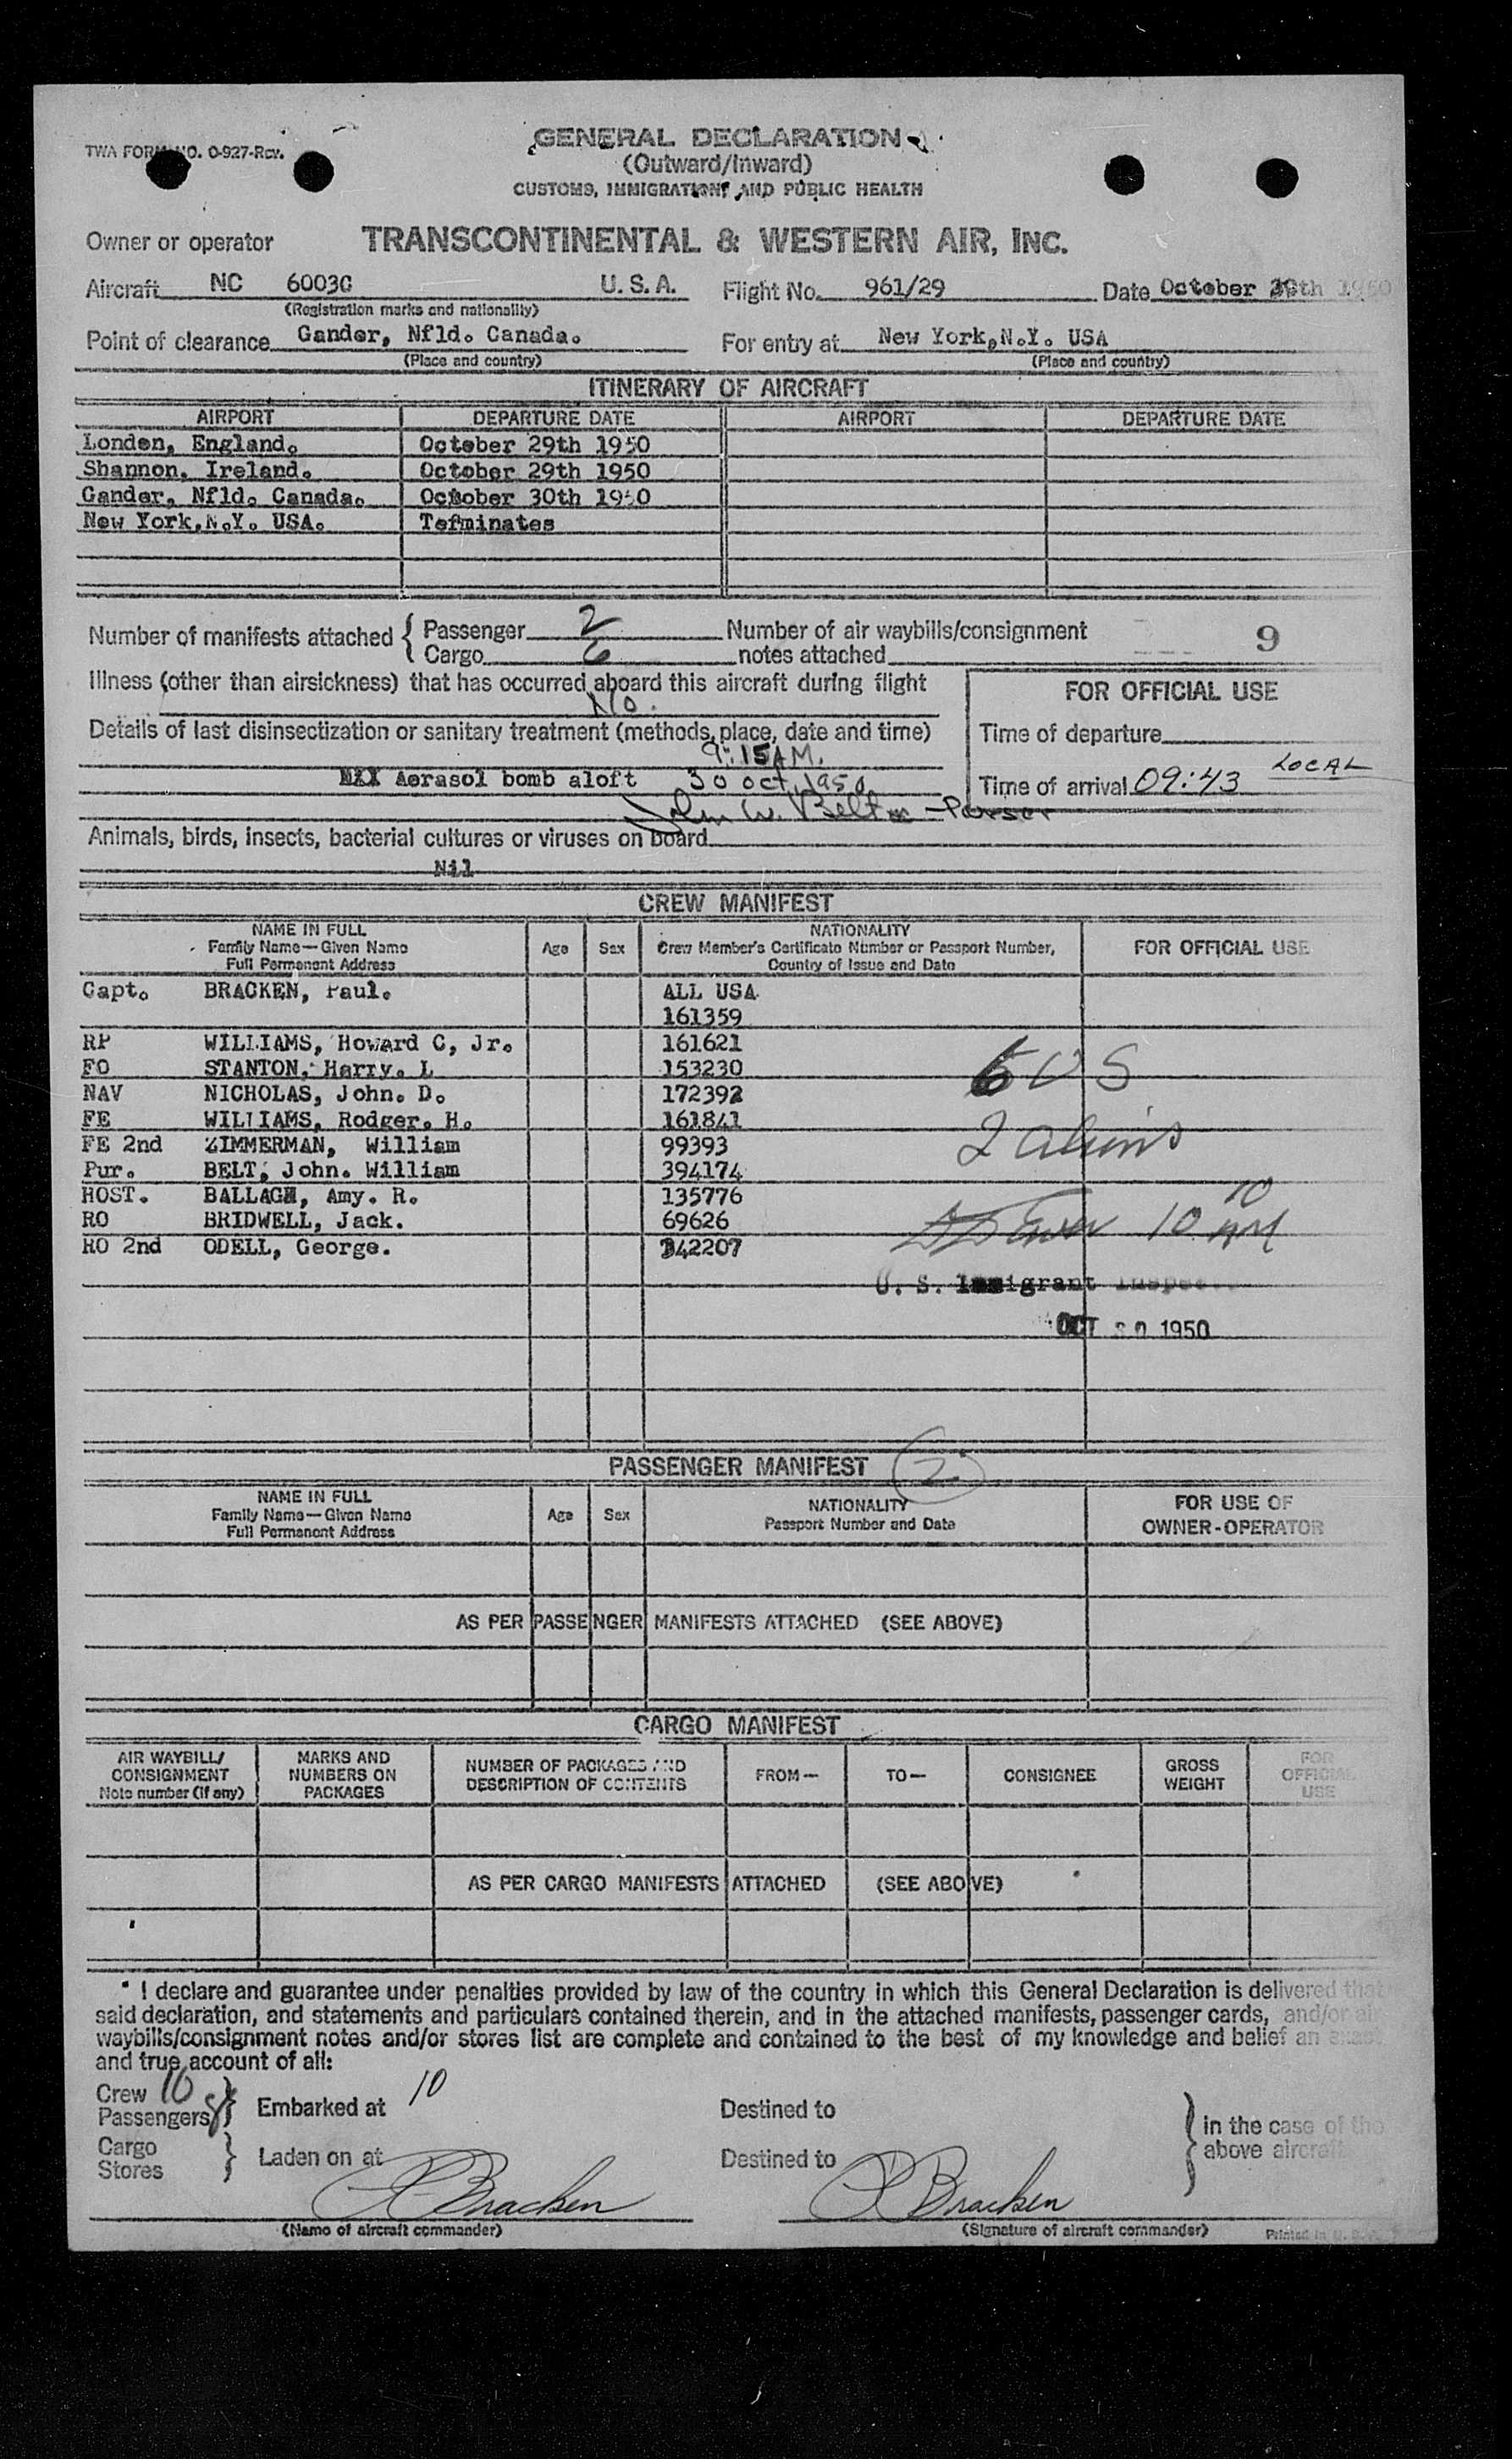 TWA FORM NO. O-927-Rev.
GENERAL DECLARATION
(Outward/Inward)
CUSTOMS, IMMIGRATION, AND PUBLIC HEALTH
Owner or operator TRANSCONTINENTAL & WESTERN AIR, INC.
Aircraft NC 6003C U. S. A. Flight No. 961/29 Date October 30th 1950
(Registration marks and nationality)
Point of clearance Gander, Nfld. Canada. For entry at New York,N.Y. USA
(Place and country) (Place and country)
ITINERARY OF AIRCRAFT
AIRPORT DEPARTURE DATE AIRPORT DEPARTURE DATE
London, England. October 29th 1950
Shannon, Ireland. October 29th 1950
Gander, Nfld. Canada. October 30th 1950
New York,N.Y. USA. Terminates
Number of manifests attached { Passenger 2 Number of air waybills/consignment 9
Cargo 6 notes attached
Illness (other than airsickness) that has occurred aboard this aircraft during flight
No.
FOR OFFICIAL USE
Details of last disinsectization or sanitary treatment (methods, place, date and time)
Time of departure
9:15 AM.
Aerasol bomb aloft 30 oct. 1950
Time of arrival 09:43 LOCAL
John W. Belt - Purser
Animals, birds, insects, bacterial cultures or viruses on board
Nil
CREW MANIFEST
NAME IN FULL
Family Name—Given Name
Full Permanent Address
Age Sex
NATIONALITY
Crew Member's Certificate Number or Passport Number,
Country of Issue and Date
FOR OFFICIAL USE
Capt. BRACKEN, Paul. ALL USA
161359
RP WILLIAMS, Howard C, Jr. 161621
FO STANTON, Harry. L 153230
NAV NICHOLAS, John. D. 172392
FE WILLIAMS, Rodger. H. 161841
FE 2nd ZIMMERMAN, William 99393
Pur. BELT, John. William 394174
HOST. BALLAGH, Amy. R. 135776
RO BRIDWELL, Jack. 69626
RO 2nd ODELL, George. 342207
6 US
2 aliens
10 10 AM
U. S. Immigrant Inspec
OCT 30 1950
PASSENGER MANIFEST 2
NAME IN FULL
Family Name—Given Name
Full Permanent Address
Age Sex
NATIONALITY
Passport Number and Date
FOR USE OF
OWNER-OPERATOR
AS PER PASSENGER MANIFESTS ATTACHED (SEE ABOVE)
CARGO MANIFEST
AIR WAYBILL/
CONSIGNMENT
Note number (if any)
MARKS AND
NUMBERS ON
PACKAGES
NUMBER OF PACKAGES AND
DESCRIPTION OF CONTENTS
FROM— TO— CONSIGNEE
GROSS
WEIGHT
FOR
OFFICIAL
USE
AS PER CARGO MANIFESTS ATTACHED (SEE ABOVE)
I declare and guarantee under penalties provided by law of the country in which this General Declaration is delivered that
said declaration, and statements and particulars contained therein, and in the attached manifests, passenger cards, and/or air
waybills/consignment notes and/or stores list are complete and contained to the best of my knowledge and belief an exact
and true account of all:
Crew 10
Passengers 8 } Embarked at 10 Destined to
Cargo
Stores } Laden on at Destined to
} in the case of the
above aircraft
P Bracken P Bracken
(Name of aircraft commander) (Signature of aircraft commander) Printed in U. S. A.